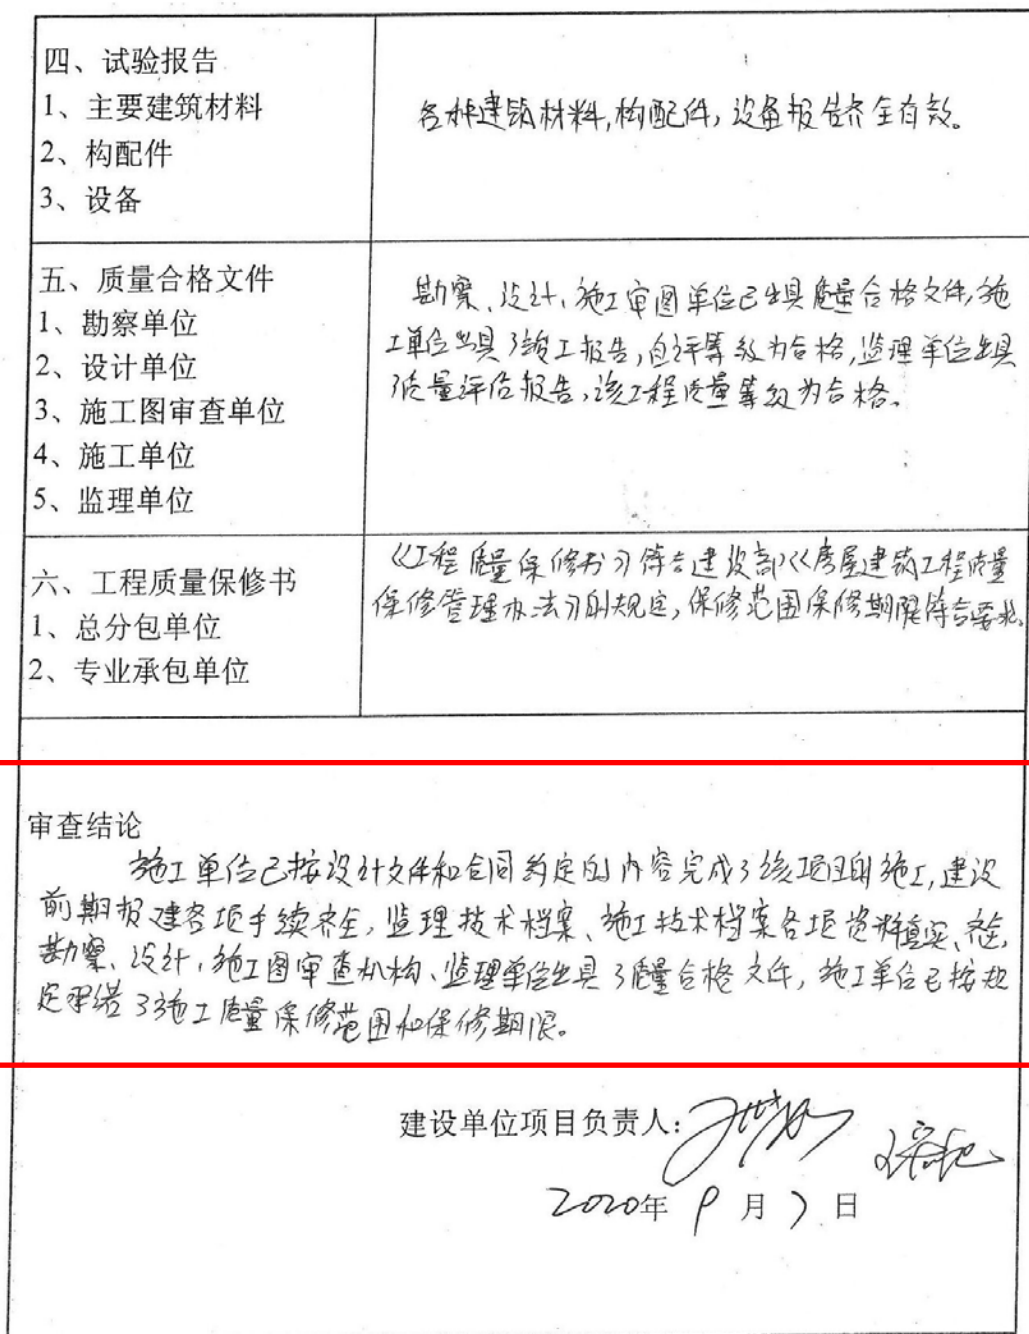 四、试验报告
1、主要建筑材料
2、构配件
3、设备
各种建筑材料,构配件,设备报告齐全有效。
五、质量合格文件
1、勘察单位
2、设计单位
3、施工图审查单位
4、施工单位
5、监理单位
勘察、设计、施工审图单位已出具质量合格文件,施
工单位出具了竣工报告,自评等级为合格,监理单位出具
了质量评估报告,该工程质量等级为合格。
六、工程质量保修书
1、总分包单位
2、专业承包单位
《工程质量保修书》符合建设部《房屋建筑工程质量
保修管理办法》的规定,保修范围保修期限符合要求。
审查结论
施工单位已按设计文件和合同约定的内容完成了该项目的施工,建设
前期报建各项手续齐全,监理技术档案、施工技术档案各项资料真实、齐全,
勘察、设计、施工图审查机构、监理单位出具了质量合格文件,施工单位已按规
定承诺了施工质量保修范围和保修期限。
建设单位项目负责人:
2020年9月7日